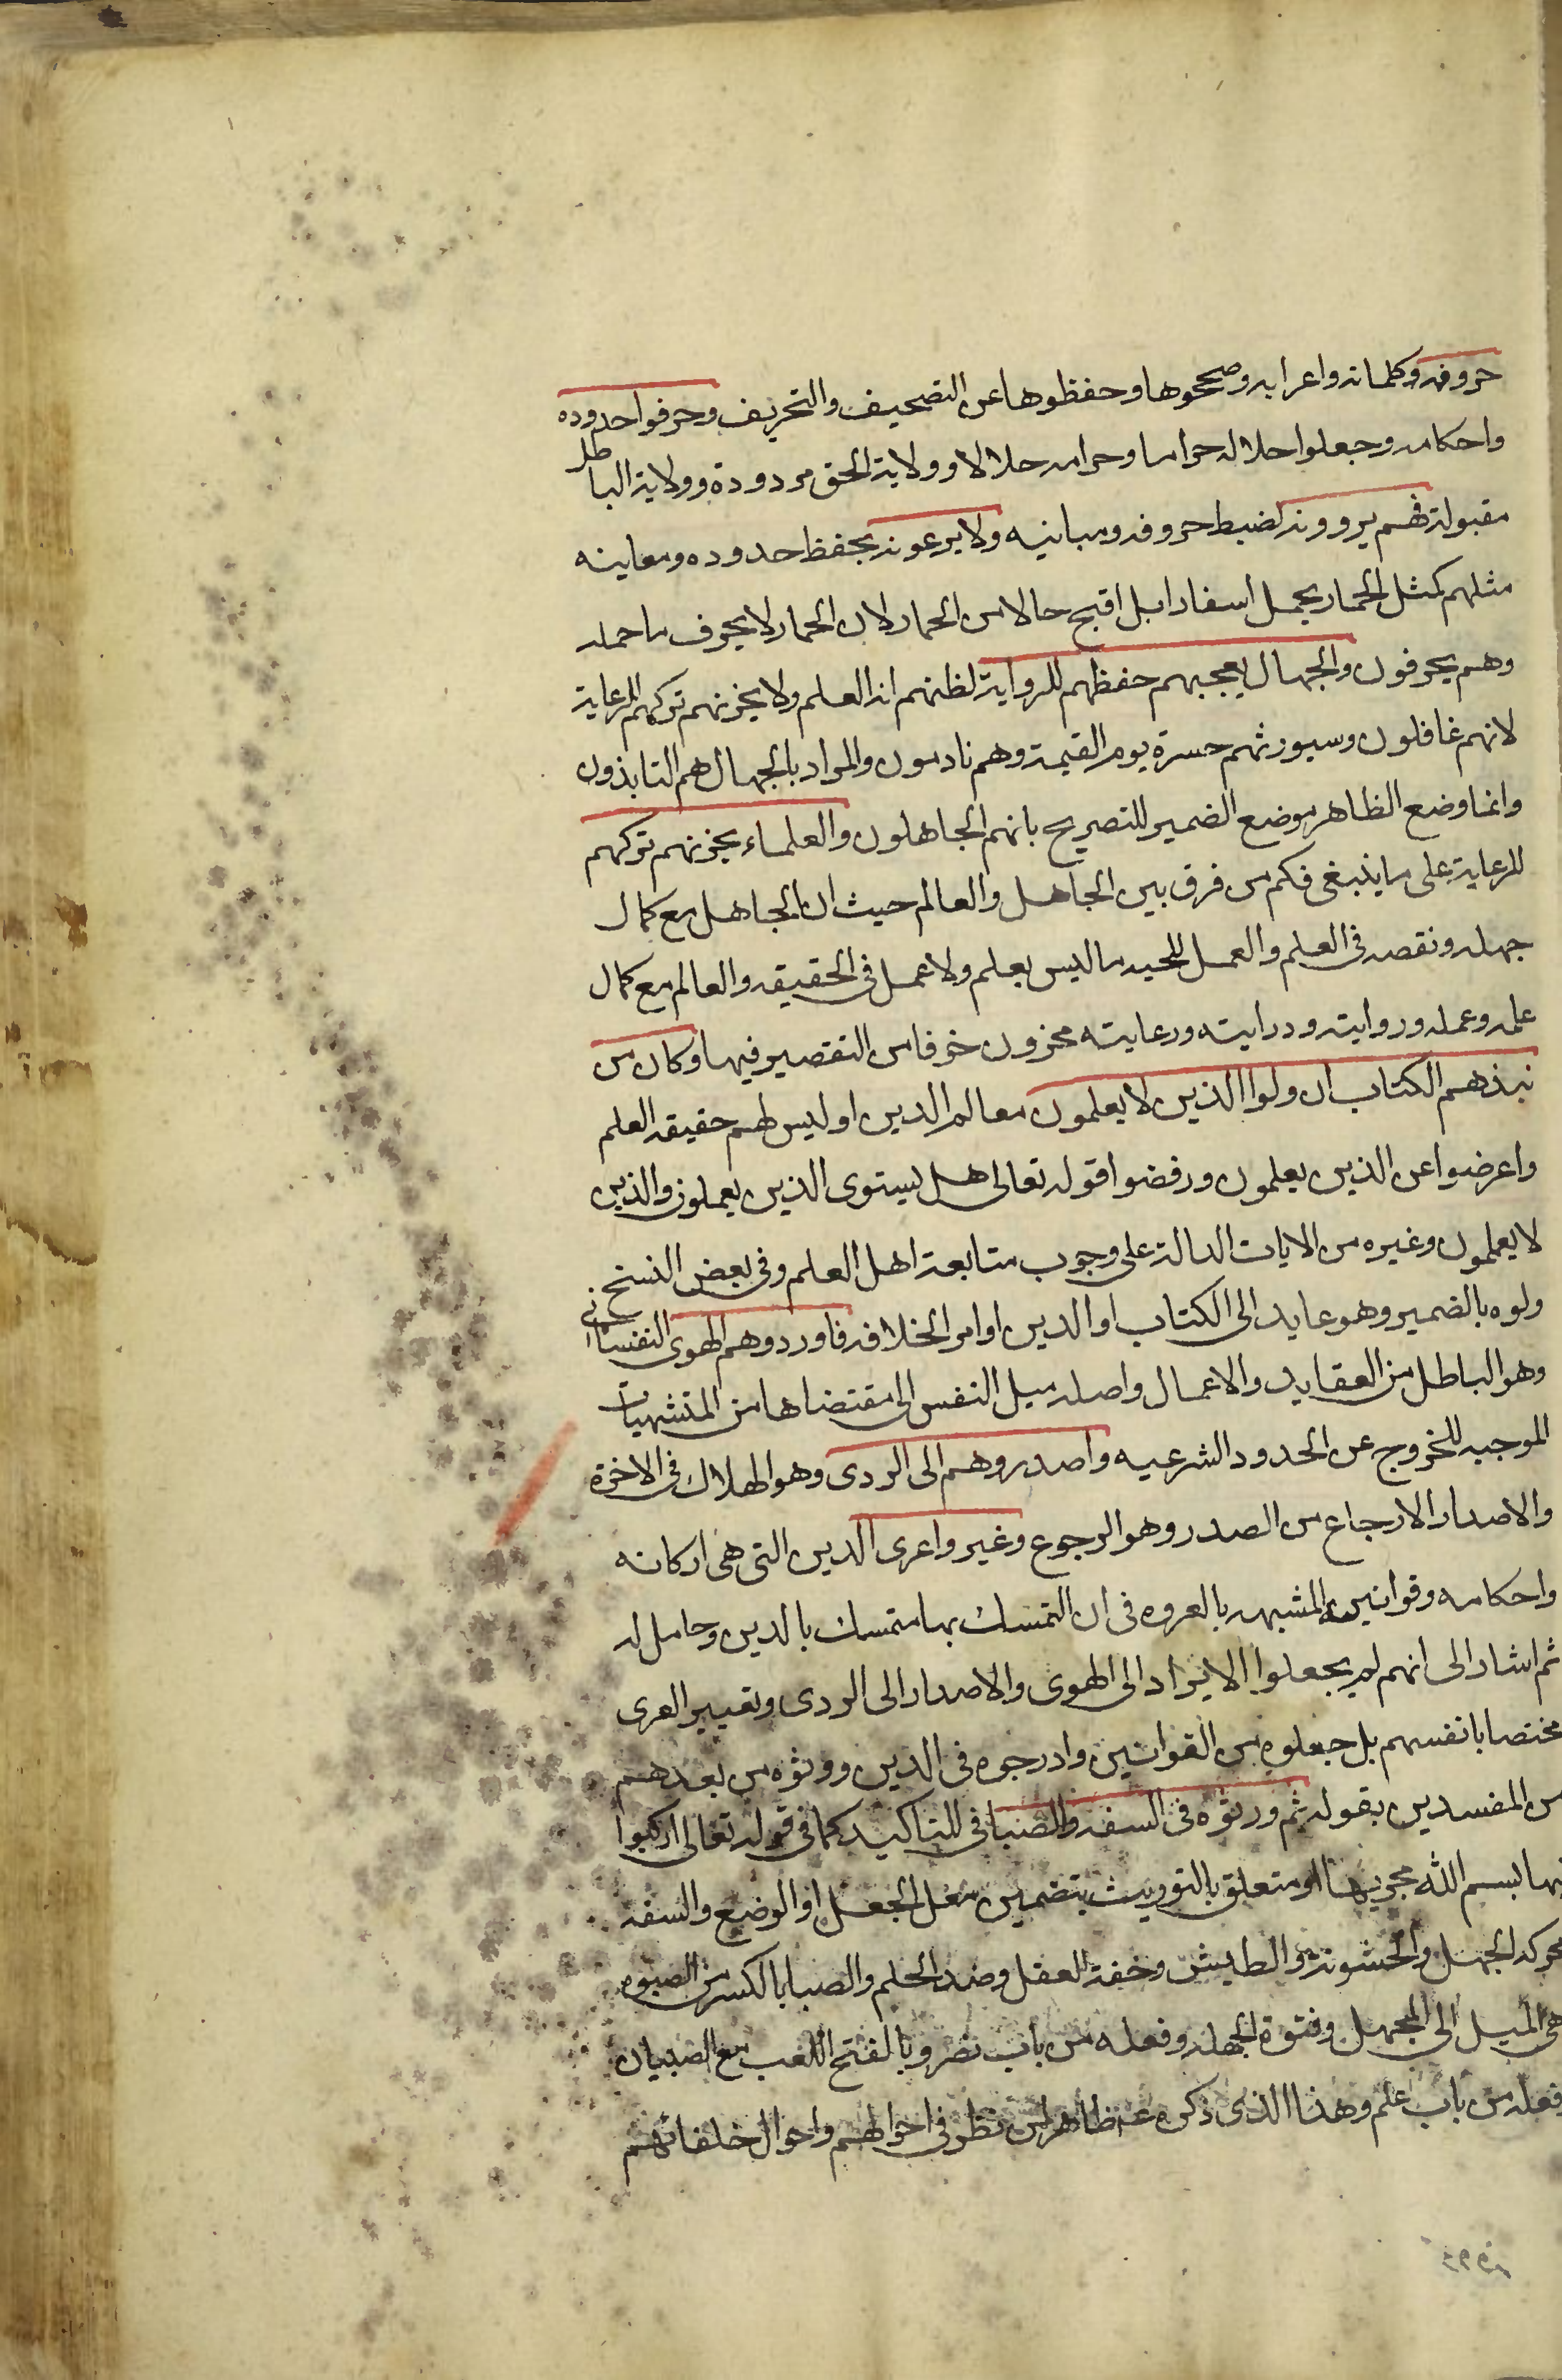 حروفه وكلماته واعرابه وصححوها وحفظوها عن التصحيف والتحريف وحرفوا حدوده
واحكامه وجعلوا حلاله حراما وحرامه حلالا وولاية الحق مردودة وولاية الباطل
مقبولة فهم يروونه لضبط حروفه ومبانيه ولا يرعونه بحفظ حدوده ومعاينه
مثلهم كمثل الحمار يحمل اسفارا بل اقبح حالا من الحمار لان الحمار لا يحرف ما حمله
وهم يحرفون والجهال يعجبهم حفظهم للرواية لظنهم انه العلم ولا يحزنهم تركهم للرعاية
لانهم غافلون وسيورثهم حسرة يوم القيمة وهم نادمون والمراد بالجهال هم النابذون
وانما وضع الظاهر موضع الضمير للتصريح بانهم الجاهلون والعلماء يحزنهم تركهم
للرعاية على ما ينبغي فكم من فرق بين الجاهل والعالم حيث ان الجاهل مع كمال
جهله ونقصه في العلم والعمل للحيه ما ليس بعلم ولا عمل في الحقيقه والعالم مع كمال
علمه وعمله وروايته ودرايته ورعايته محزون خوفا من التقصير فيها وكان من
نبذهم الكتاب ان ولوا الذين لا يعلمون معالم الدين او ليس لهم حقيقه العلم
واعرضوا عن الذين يعلمون ورفضوا قوله تعالى هل يستوى الذين يعملون والذين
لا يعلمون وغيره من الايات الدالة على وجوب متابعة اهل العلم وفي بعض النسخ
ولوه بالضمير وهو عايد الى الكتاب او الدين او امر الخلافه فاوردوهم الهوى النفساني
وهو الباطل من العقايد والاعمال واصله ميل النفس الى مقتضاها من المتشهيات
الموجبه للخروج عن الحدود الشرعيه واصدروهم الى الردى وهو الهلاك في الاخرة
والاصدار الارجاع من الصدر وهو الرجوع وغيروا عرى الدين التى هى اركانه
واحكامه وقوانينه المشبهه بالعروه في ان التمسك بها متمسك بالدين وحامل له
ثم اشار الى انهم لم يجعلوا الايراد الى الهوى والاصدار الى الردى وتغيير العرى
مختصا بانفسهم بل جعلوه من القوانين وادرجوه في الدين وورثوه من بعدهم
من المفسدين بقوله ثم ورثوه في السفه والصبا في للتاكيد كما في قوله تعالى اركبوا
فيها بسم الله مجريها او متعلق بالتوريث بتضمين معنى الجعل او الوضع والسفه
محركه الجهل والخشونة والطيش وخفة العقل وضد الحلم والصبا بالكسر من الصبوه
هى الميل الى الجهل وفتوة الجهله وفعله من باب نصر وبالفتح اللعب مع الصبيان
وفعله من باب علم وهذا الذى ذكره ظاهر لمن نظر في احوالهم واحوال خلفائهم